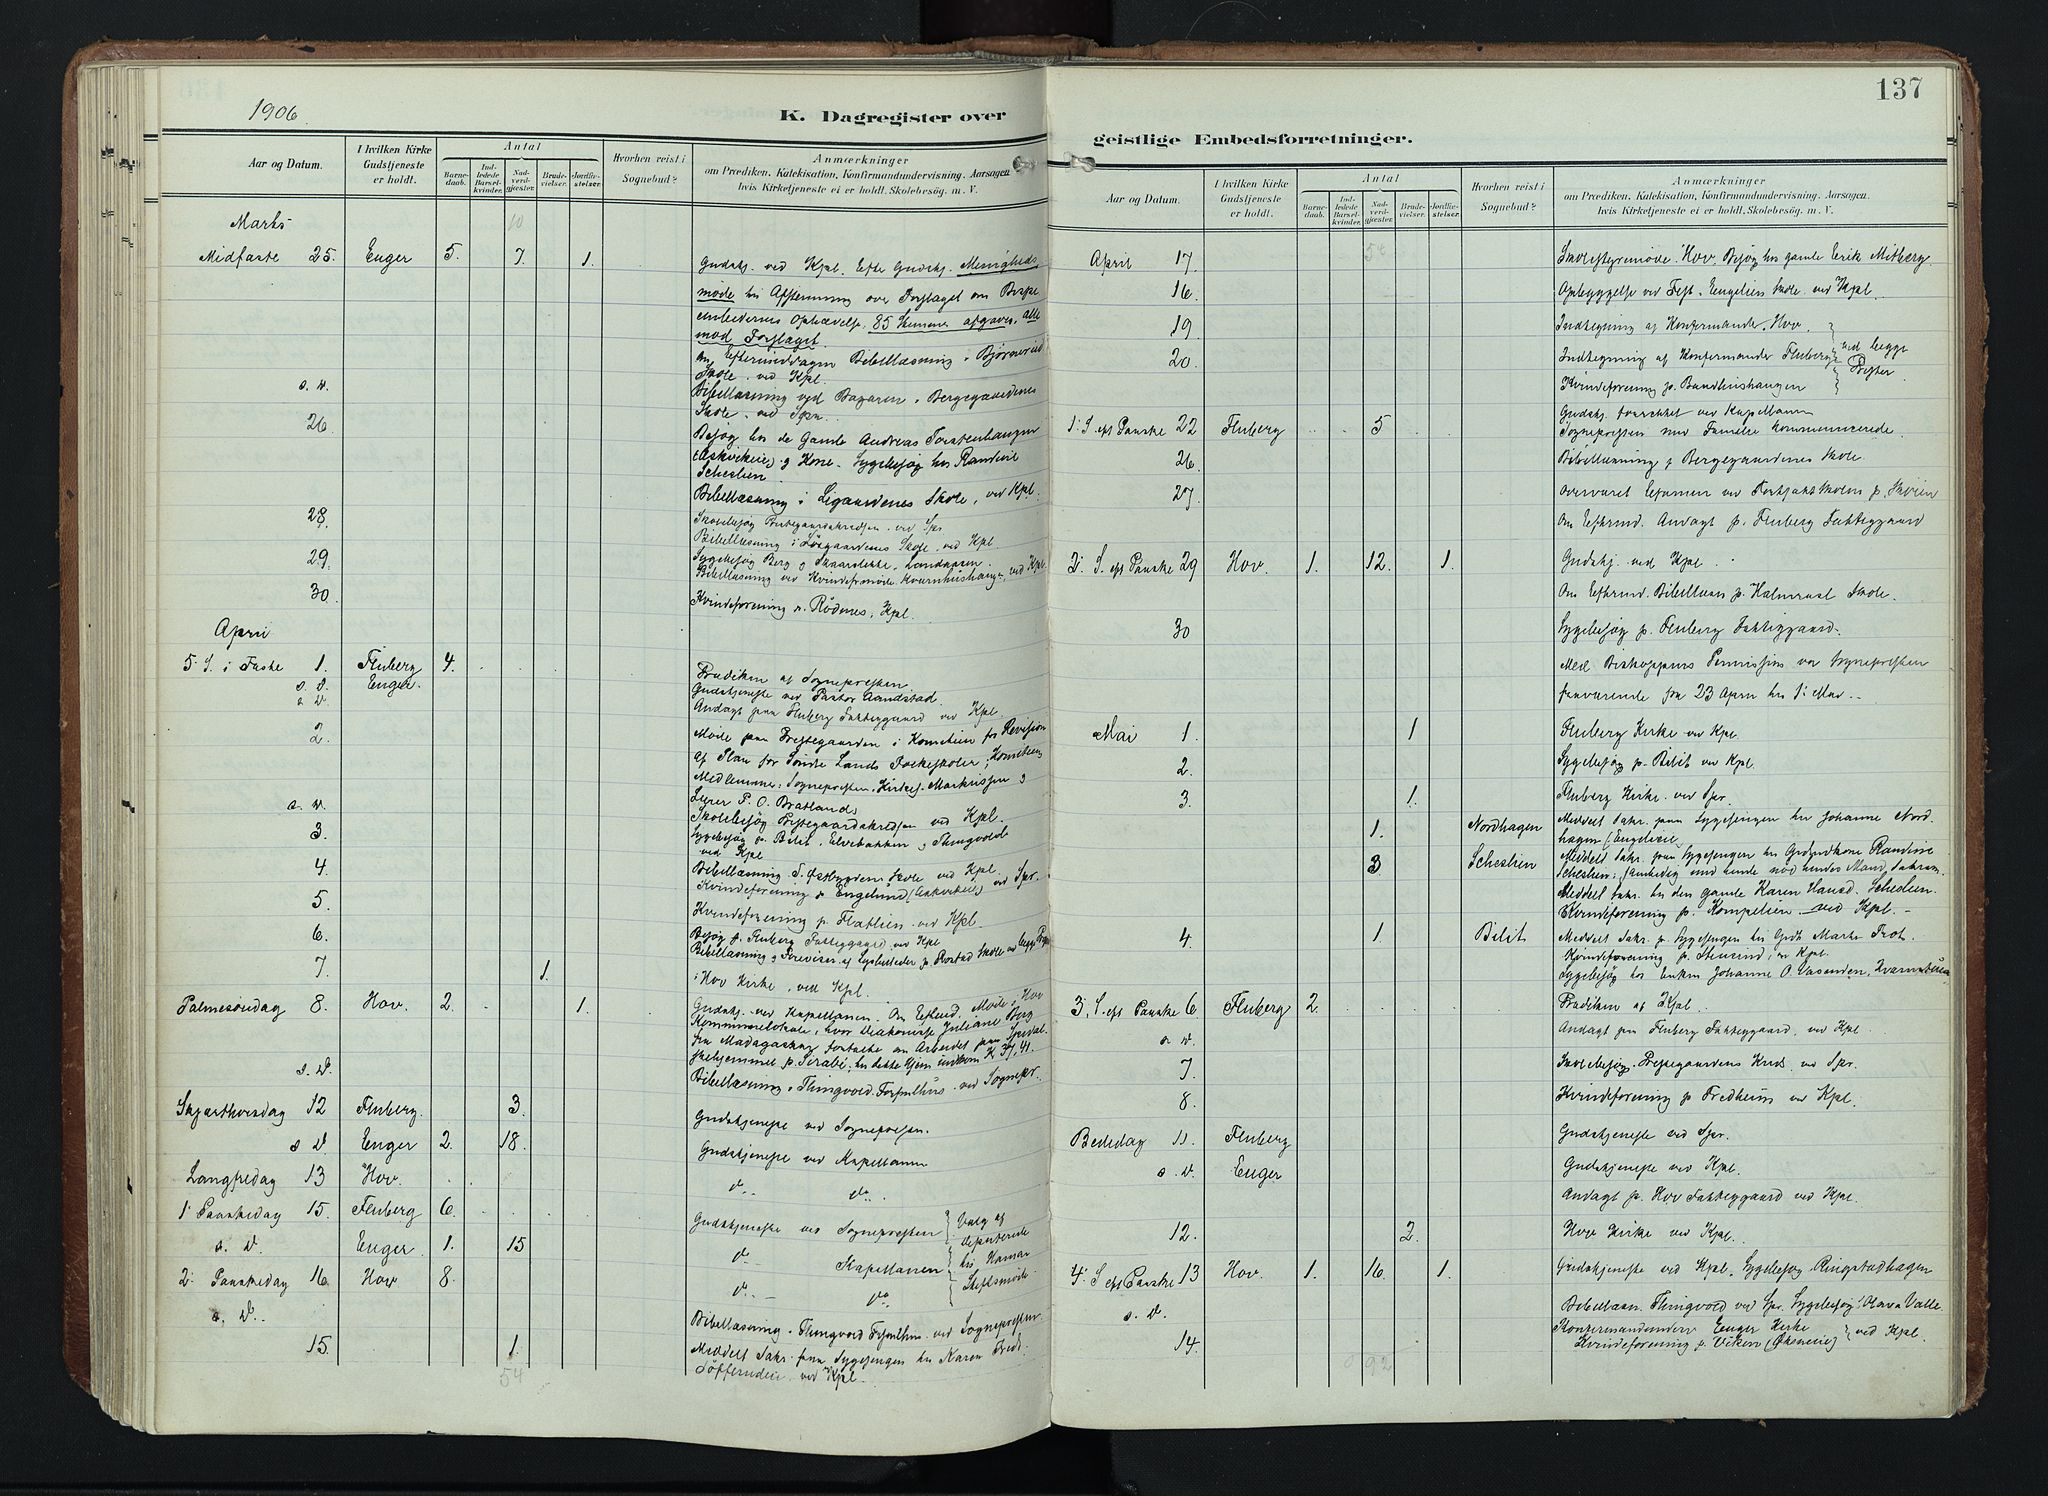 1906
K. Dagregister over
Aar og Datum.
I hvilken Kirke Gudstjeneste er holdt.
Antal
Barnedaab.
Indledede Barselkvinder.
Nadverdgjester.
Brudevielser.
Jordfæstelser.
Hvorhen reist i Sognebud?
Anmærkninger
om Prædiken, Katekisation, Konfirmandundervisning, Aarsagen
hvis Kirketjeneste ei er holdt, Skolebesøg. m. V.
Marts 10
Midfaste 25. Enger 5. 7. 1. Gudstj. ved Kpl. Efter Gudstj. Menigheds
møde til Afstemning over Forslaget om Bispe
embedernes Ophævelse. 85 Stemmer afgaves, alle
mod Forslaget.
Om Eftermiddagen Bibellæsning i
Skole ved Kpl.
s. d. Bibellæsning ved Bazaren i Bergegaardenes
Skole, ved Spr.
26. Besøg hos de Gamle Andreas Torstenhaugen
og Kone. Sygebesøg hos
Scheslien
Bibellæsning i Ligaardenes Skole, ved Kpl.
28. Skolebesøg Prestegaardskredsen ved Spr
Bibellæsning i Skole ved Kpl.
29. Sygebesøg Berg og
Bibellæsning ved Kvindeforening ved Kpl.
30. Kvindeforening p. Rødnes, Kpl.
April
5. S. i Faste 1. Fluberg 4. Prædiken af Sognepresten
s. d. Enger. Gudstjeneste ved Pastor Sandstad.
s. d. Andagt paa Fluberg Fattiggaard ved Kpl.
2. Møde paa Prestegaarden i Komiteen for Revision
af Plan for Søndre Lands Folkeskoler; Komiteens
Medlemmer: Sognepresten, Kirkes. Markussen og
Lærer P. O. Bratland.
s. d. Skolebesøg Prestegaardskredsen ved Kpl.
3. Sygebesøg p. Bilit, Elvebakken og Thingvold
ved Kpl
4. Bibellæsning S. Østbygdens Skole ved Kpl.
Kvindeforening p. Engelund ved Spr.
5. Kvindeforening p. Flatlien ved Kpl.
6. Besøg p. Fluberg Fattiggaard ved Kpl
Bibellæsning og Foreviser af Lysbilleder p. Rostad Skole ved begge
7. 1. i Hov Kirke, ved Kpl.
Palmesøndag 8. Hov. 2. 1. Gudstj. ved Kapellanen. Om Efterm. Møde i Hov
Kommunelokale, hvor Diakonisse Juliane Berg
fra Madagaskar fortalte om Arbeidet paa Spedal
skehjemmet p. Sirabe; til dette Hjem indkom K 37,41.
s. d. Bibellæsning i Thingvold Forsamlhus ved Sognepr.
Skjærthorsdag 12 Fluberg. 3. Gudstjeneste ved Sognepresten.
s. d. Enger 2. 18. Gudstjeneste ved Kapellanen
Langfredag 13 Hov. do. do.
1. Paaskedag 15. Fluberg 6. Gudstjeneste ved Sognepresten Valg af
s. d. Enger. 1. 15 do. Kapellanen deputerede
2. Paaskedag 16. Hov 8. do. do. til Hamar
Stiftsmøde
s. d. Bibellæsning i Thingvold Forsamlhus ved Sognepresten
15. 1. Meddelt Sakr. paa Sygesengen hos Karen
ved Kpl.
54
137
geistlige Embedsforretninger.
Aar og Datum.
I hvilken Kirke Gudstjeneste er holdt.
Antal
Barnedaab.
Indledede Barselkvinder.
Nadverdgjester.
Brudevielser.
Jordfæstelser.
Hvorhen reist i Sognebud?
Anmærkninger
om Prædiken, Katekisation, Konfirmandundervisning, Aarsagen
hvis Kirketjeneste ei er holdt, Skolebesøg. m. V.
54
April 17. Skolestyremøde i Hov. Besøg hos gamle Erik
16. Opbyggelse ved Fest i Engeliens Skole ved Kpl.
19 Indtegning af Konfirmander i Hov. ved begge
20. Indtegning af Konfirmander Fluberg Prester
Kvindeforening p.
Gudstj. forrettet ved Kapellanen
1. S. eft Paaske 22 Fluberg 5 Sognepresten med Familie kommunicerede.
26. Bibellæsning p. Bergegaardenes Skole.
27. Overværet Examen ved
Om Efterm. Andagt p. Fluberg Fattiggaard
2. S. eft Paaske 29 Hov. 1. 12. 1. Gudstj. ved Kpl
Om Efterm. Bibellæsn. p. Skole.
30 Sygebesøg p. Fluberg Fattiggaard.
Med Biskoppens Permission var Sognepresten
fraværende fra 23 April til 1. Mai.
Mai 1. 1 Fluberg Kirke ved Kpl.
2. Sygebesøg p. Bilit ved Kpl.
3. 1. Fluberg Kirke ved Spr.
1. Nordhagen Meddelt Sakr. paa Sygesengen hos Johanne Nord-
hagen (Engelieie)
3 Scheslien Meddelt Sakr. paa Sygesengen hos Gaardmkone Randine
Scheslien;
Meddelt Sakr. hos den gamle Karen Hansd. Scheslien.
Kvindeforening p. Kompelien ved Kpl.
4. 1. Bilit Meddelt Sakr. p. Sygesengen hos
Kvindeforening p. ved Kpl.
Sygebesøg hos Enken Johanne O.
3. S. eft Paaske 6 Fluberg 2. Prædiken af Kpl.
s. d. Andagt paa Fluberg Fattiggaard, ved Kpl.
7. Skolebesøg i Prestegaardens Kreds ved Spr.
8. Kvindeforening p. Fredheim ved Kpl.
Bededag 11. Fluberg Gudstjeneste ved Spr.
s. d. Enger Gudstjeneste ved Kpl.
Andagt p. Hov Fattiggaard ved Kpl.
12. 2. Hov Kirke ved Kpl.
4. S. eft Paaske 13 Hov. 1. 16. 1. Gudstjeneste ved Kpl. Sygebesøg Ringstadhagen
s. d. Bibellæsn. Thingvold ved Spr. Sygebesøg Olava Valle
14. Konfirmandunderv. Enger Kirke
Kvindeforening p. Viken ved Kpl.
92